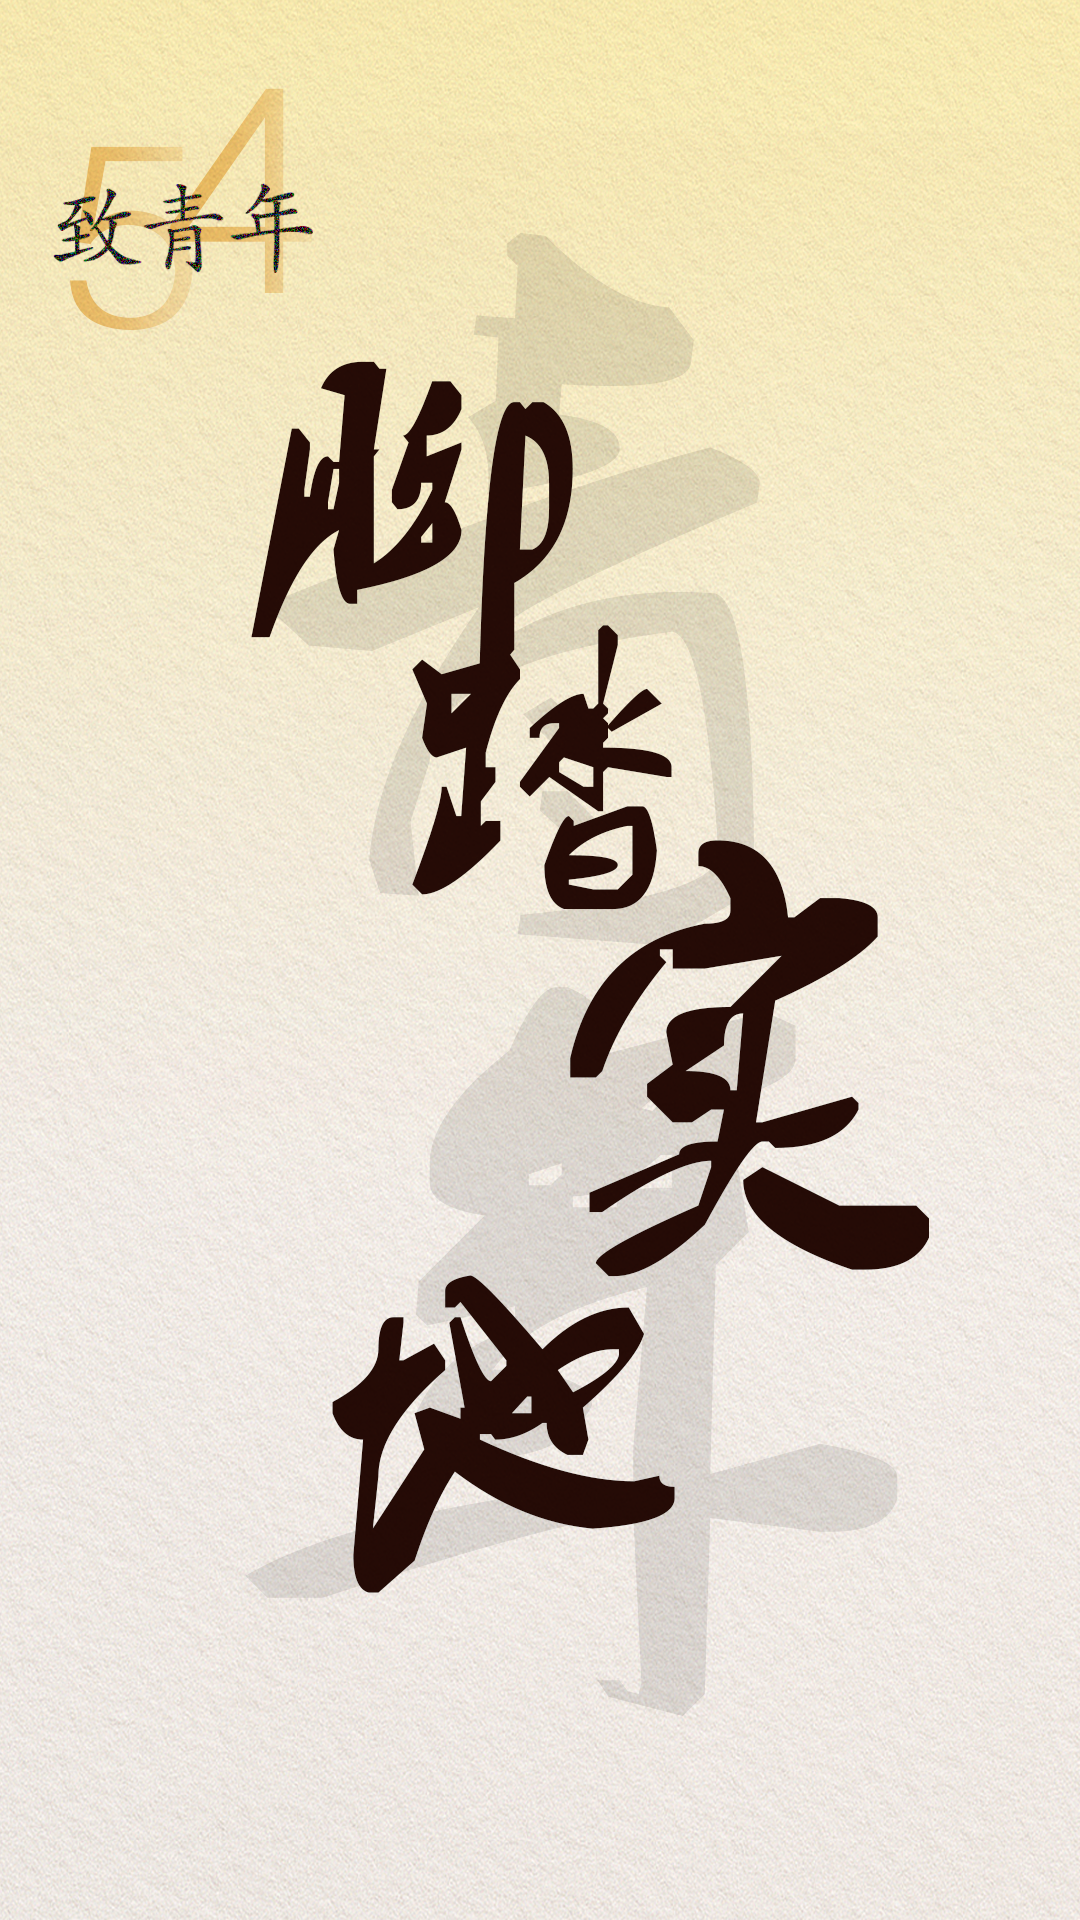 54
致青年
青年
脚踏实地